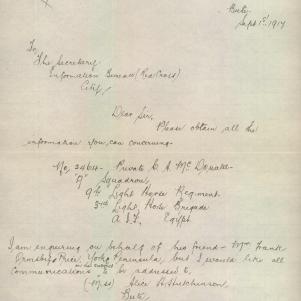 Bute,
Sept 1st, 1917
To,
The Secretary
Information Bureau (Red Cross)
City,
Dear Sir,
Please obtain all the
information you can concerning
No, 3464 - Private C A Mc
"A" Squadron,
9th Light Horse Regiment
3rd Light Horse Brigade
A.I.F, Egypt.
I am enquiring on behalf of his friend - Mr Frank
Price, Yorke Peninsula, but I would like all
communications to be addressed to,
(Miss) Alice H. Hutchinson,
Bute